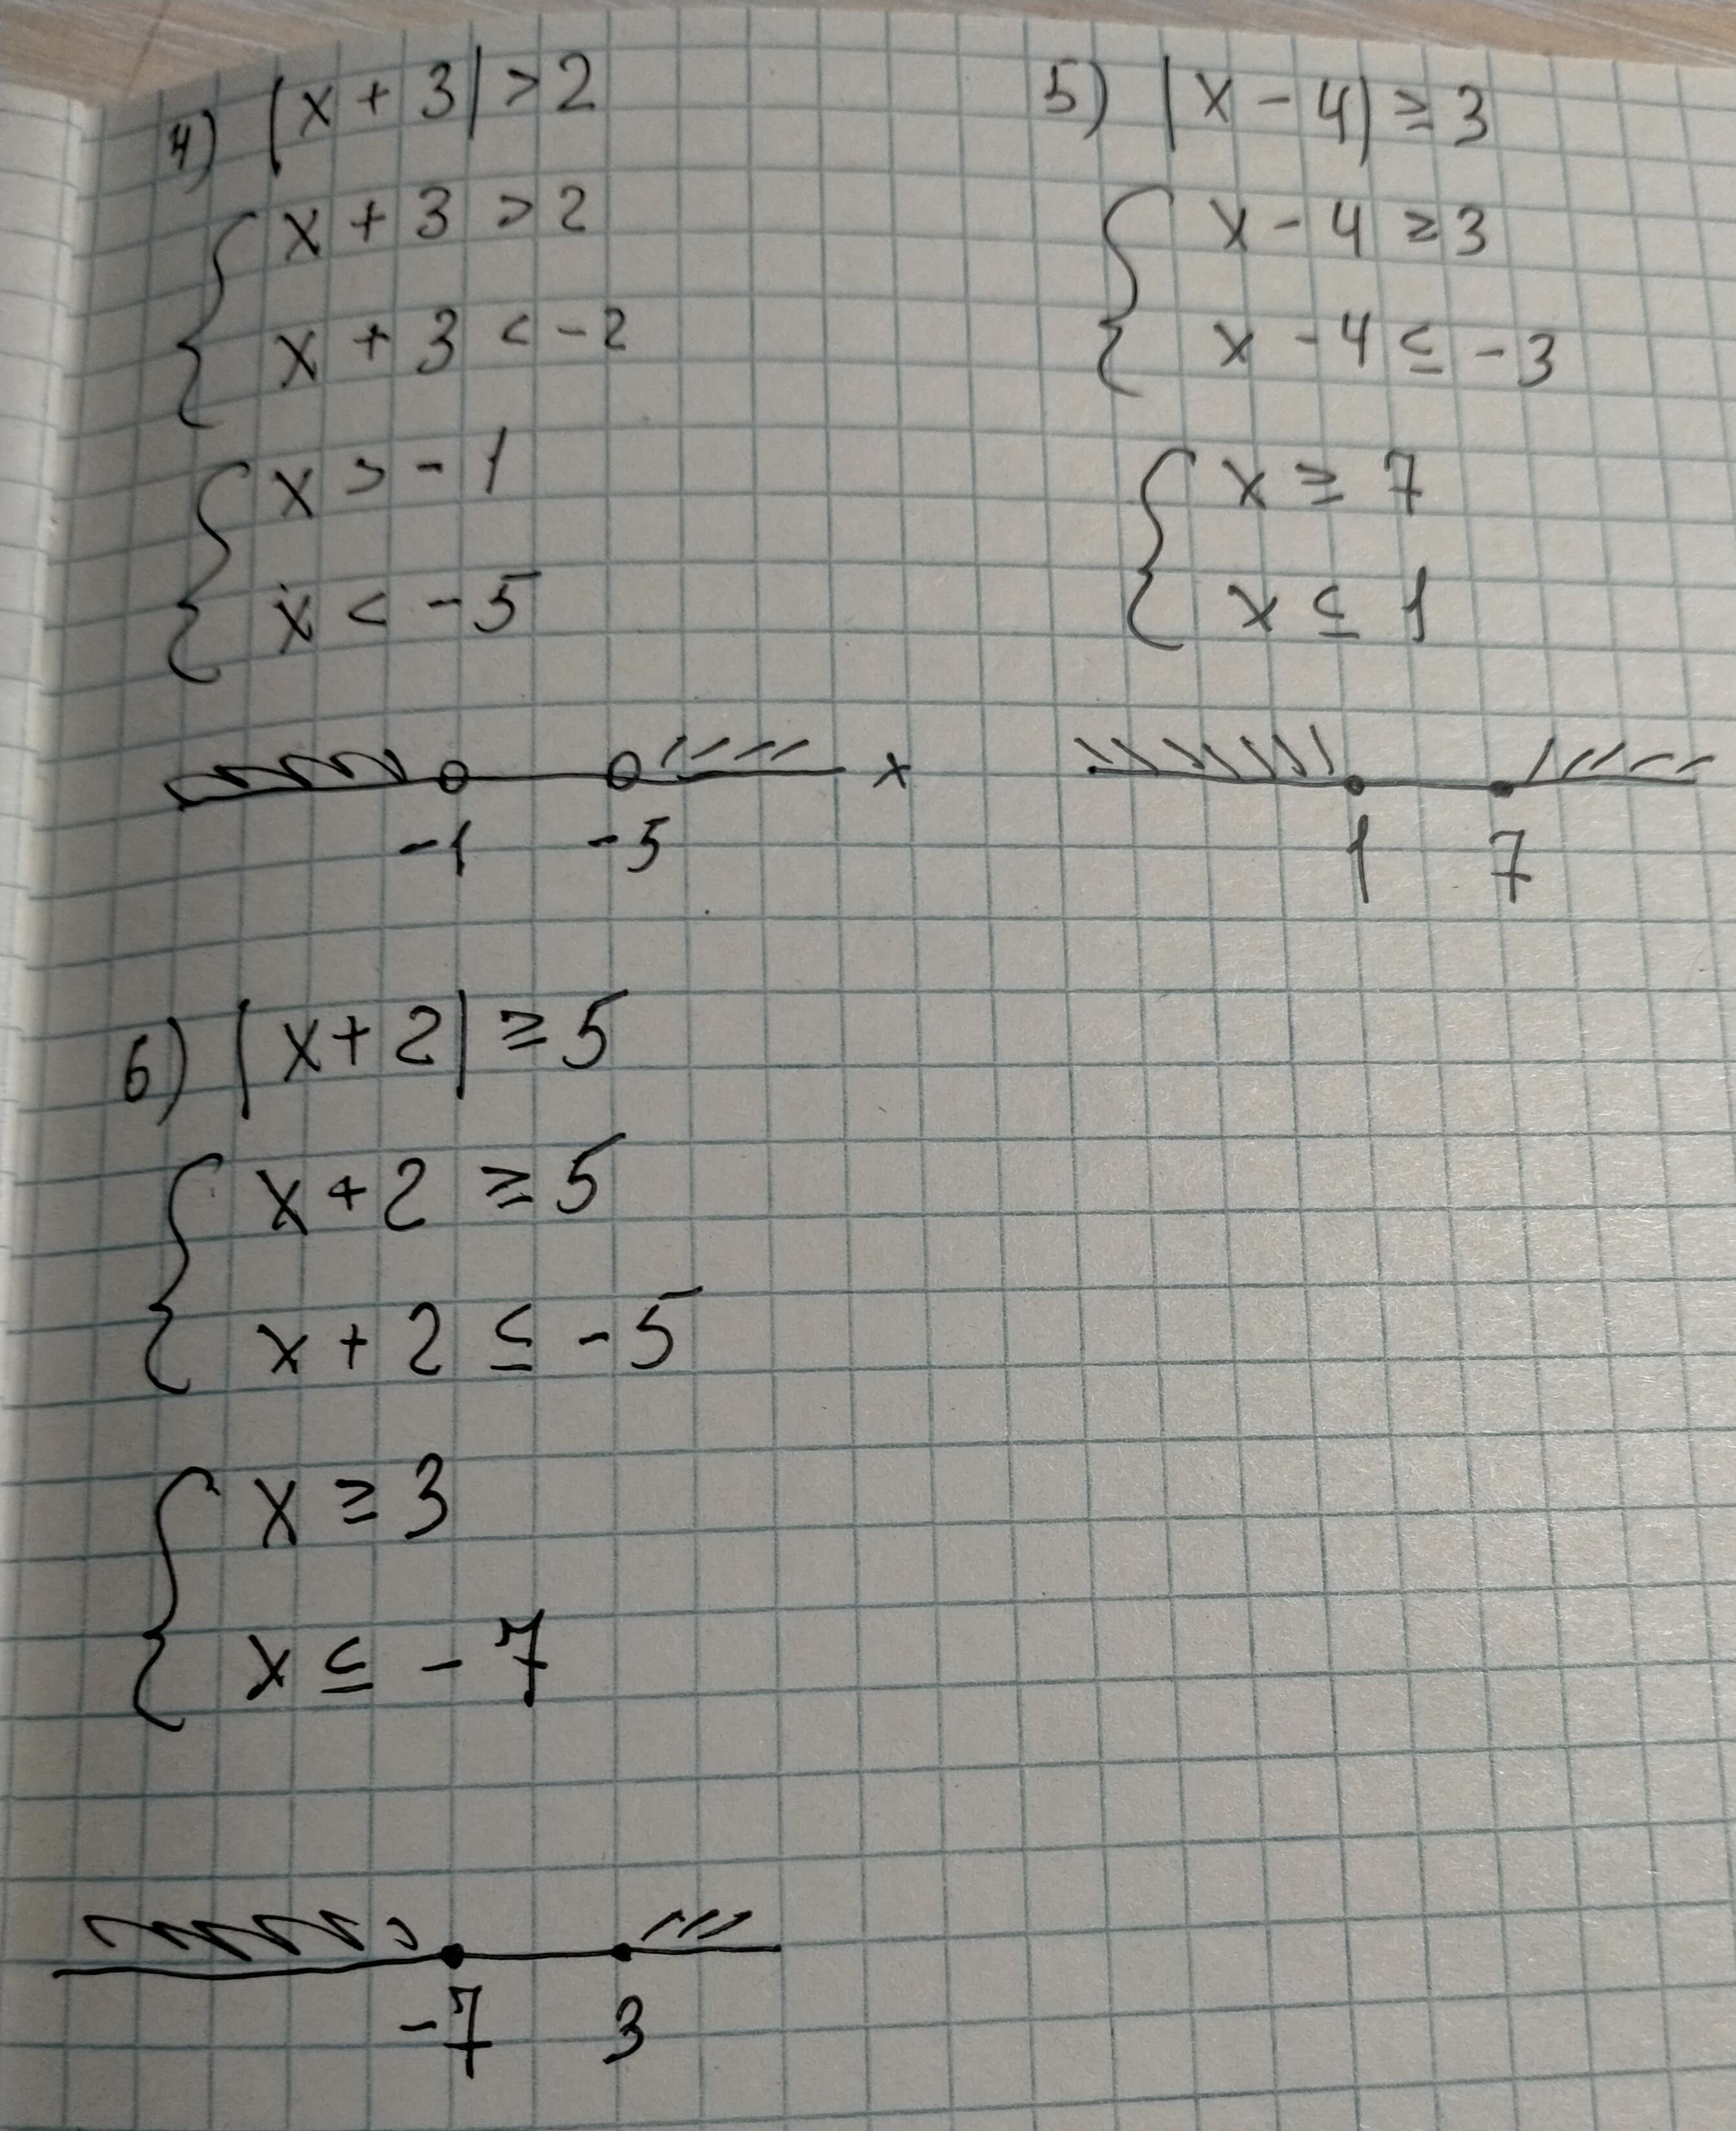 4) |x + 3| > 2
{ x + 3 > 2
x + 3 < -2
{ x > -1
x < -5
-1 -5 x
5) |x - 4| ≥ 3
{ x - 4 ≥ 3
x - 4 ≤ -3
{ x ≥ 7
x ≤ 1
1 7
6) |x + 2| ≥ 5
{ x + 2 ≥ 5
x + 2 ≤ -5
{ x ≥ 3
x ≤ -7
-7 3